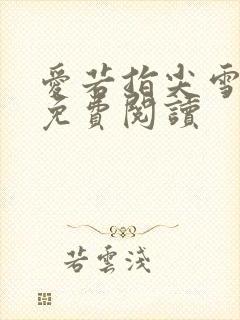 愛若指尖雪
免費閱讀
若雲淺